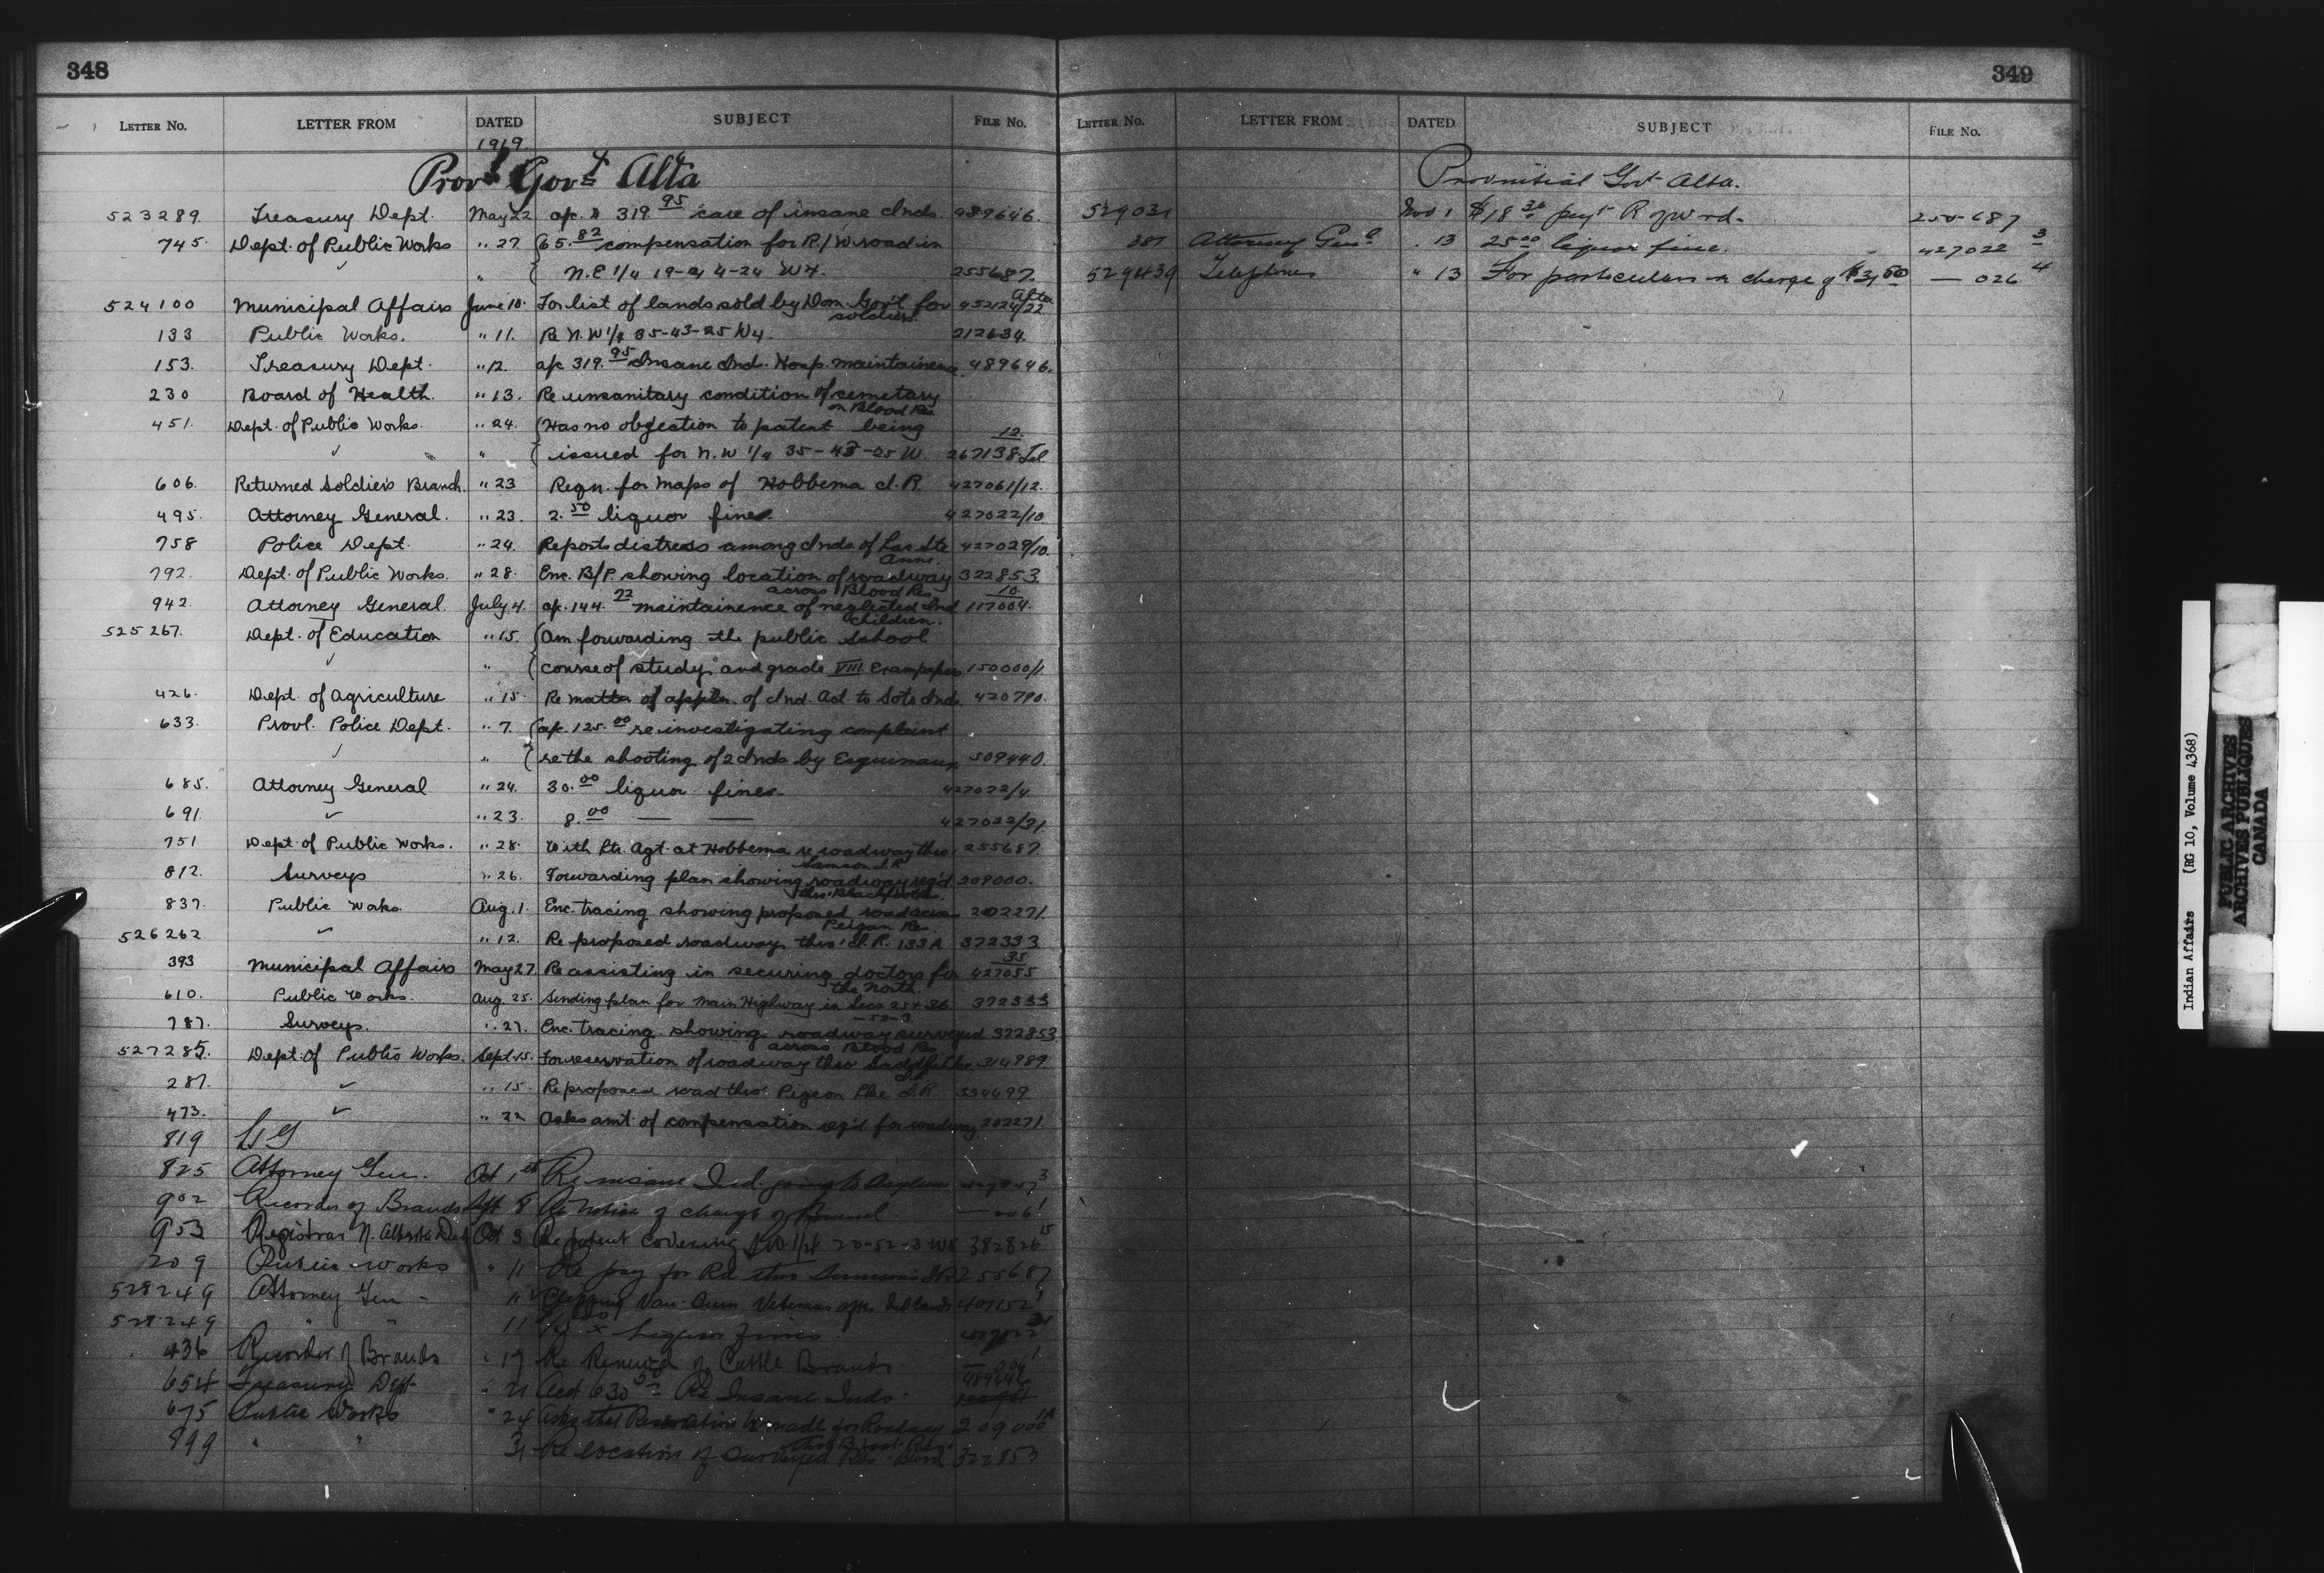 348
LETTER No. LETTER FROM DATED SUBJECT FILE No.
1919
Provl Govt Alta
523289 Treasury Dept. May 22 a/c 319.95 care of insane Inds. 489646.
745. Dept. of Public Works " 27 (65.82 compensation for R/W road in
✓ " { N.E 1/4 19-44-24 W4. 255687.
524100 Municipal Affairs June 10. For list of lands sold by Dom. Gov't for soldiers. 452124/22 Alta
133 Public Works. " 11. Re N.W 1/4 35-43-25 W4. 212634.
153. Treasury Dept. " 12. a/c 319.95 Insane Ind. Hosp. maintainence. 489646.
230 Board of Health. " 13. Re unsanitary condition of cemetary on Blood Res
451. Dept. of Public Works. " 24. (Has no objection to patent being
✓ " { issued for N.W 1/4 35-43-25 W. 267138 12
606. Returned Soldiers Branch. " 23 Reqn. for maps of Hobbema I.R. 427061/12.
495. Attorney General. " 23. 2.50 liquor fines. 427022/10
758 Police Dept. " 24. Reports distress among Inds of Lac Ste Anne. 427029/10.
792. Dept. of Public Works. " 28. Enc. B/P. showing location of roadway across Blood Res 322853
942. Attorney General July 4. a/c. 144.22 maintainence of neglected Ind children. 117004. 10
525267. Dept. of Education " 15. (Am forwarding the public School
✓ " { course of study, and grade VIII. Exam papers 150000/1
426. Dept. of Agriculture " 15. Re matter of appln. of Ind. Act. to Soto Inds 420790.
633. Provl. Police Dept. " 7. (a/c. 125.00 re investigating complaint
✓ " { re the shooting of 2 Inds by Esquimaux 509440
685. Attorney General " 24. 30.00 liquor fines. 427022/4.
691. ✓ " 23. 8.00 — — 427022/31
751 Dept of Public Works. " 28. With Ptr. Agt. at Hobbema re roadway thro' Samson I.R. 255687
812. Surveys " 26. Forwarding plan showing roadway reg'd thro' Blackfoot Res. 209000.
837. Public Works Aug. 1. Enc. tracing showing proposed road across Peigan Res. 202271
526262 ✓ " 12. Re proposed roadway thro' I.R. 133A 372333
393 Municipal Affairs May 27. Re assisting in securing doctors for the North. 427055 35
610. Public Works. Aug. 25. Sending plan for main Highway in Secs 25 & 36 -53-3. 372333
787. Surveys. " 27. Enc. tracing showing roadway surveyed across Blood Res 322853
527285. Dept. of Public Works. Sept. 15. For reservation of roadway thro' Saddle Lke 314989
287. ✓ " 15. Re proposed road thro' Pigeon Lke I.R. 334499
473. ✓ " 22 Asks amt. of compensation req'd for roadway 202271
819
825 Attorney Gen. Oct 1st Re insane Ind. going to Asylum
902 Recorder of Brands Sept 8 Re notice of change of Brand — 006 1
953 Registrar N. Alberta Oct 3 Re patent covering 1/4 20-52-3-W5 382826 15
209 Public works " 11 Re pay for Rd thro Samson's IR 255687
528249 Attorney Gen - Veterans 401152 1
528249 " " 11 Liquor Fines 427022 31
436 Recorder of Brands " 17 Re Renewal of Cattle Brands — 006 1
654 Treasury Dept " 21 Acct 630.50 Re Insane Inds. 489646
675 Public Works " 24 Asks that Reservation be made for Roadway thro' Res. 209000 1A
899 " " 31 Re location of Surveyed Rds. Blood 322853
349
LETTER No. LETTER FROM DATED SUBJECT FILE No.
Provincial Govt Alta.
529031 Nov 1 $18.36 payt R of W rd. 255687
387 Attorney Genl . 13 25.00 liquor fine. 427022 3
529439 Telephones " 13 For particulars in charge of $3.60 — 026 4
Indian Affairs (RG 10, Volume 4368)
PUBLIC ARCHIVES
ARCHIVES PUBLIQUES
CANADA